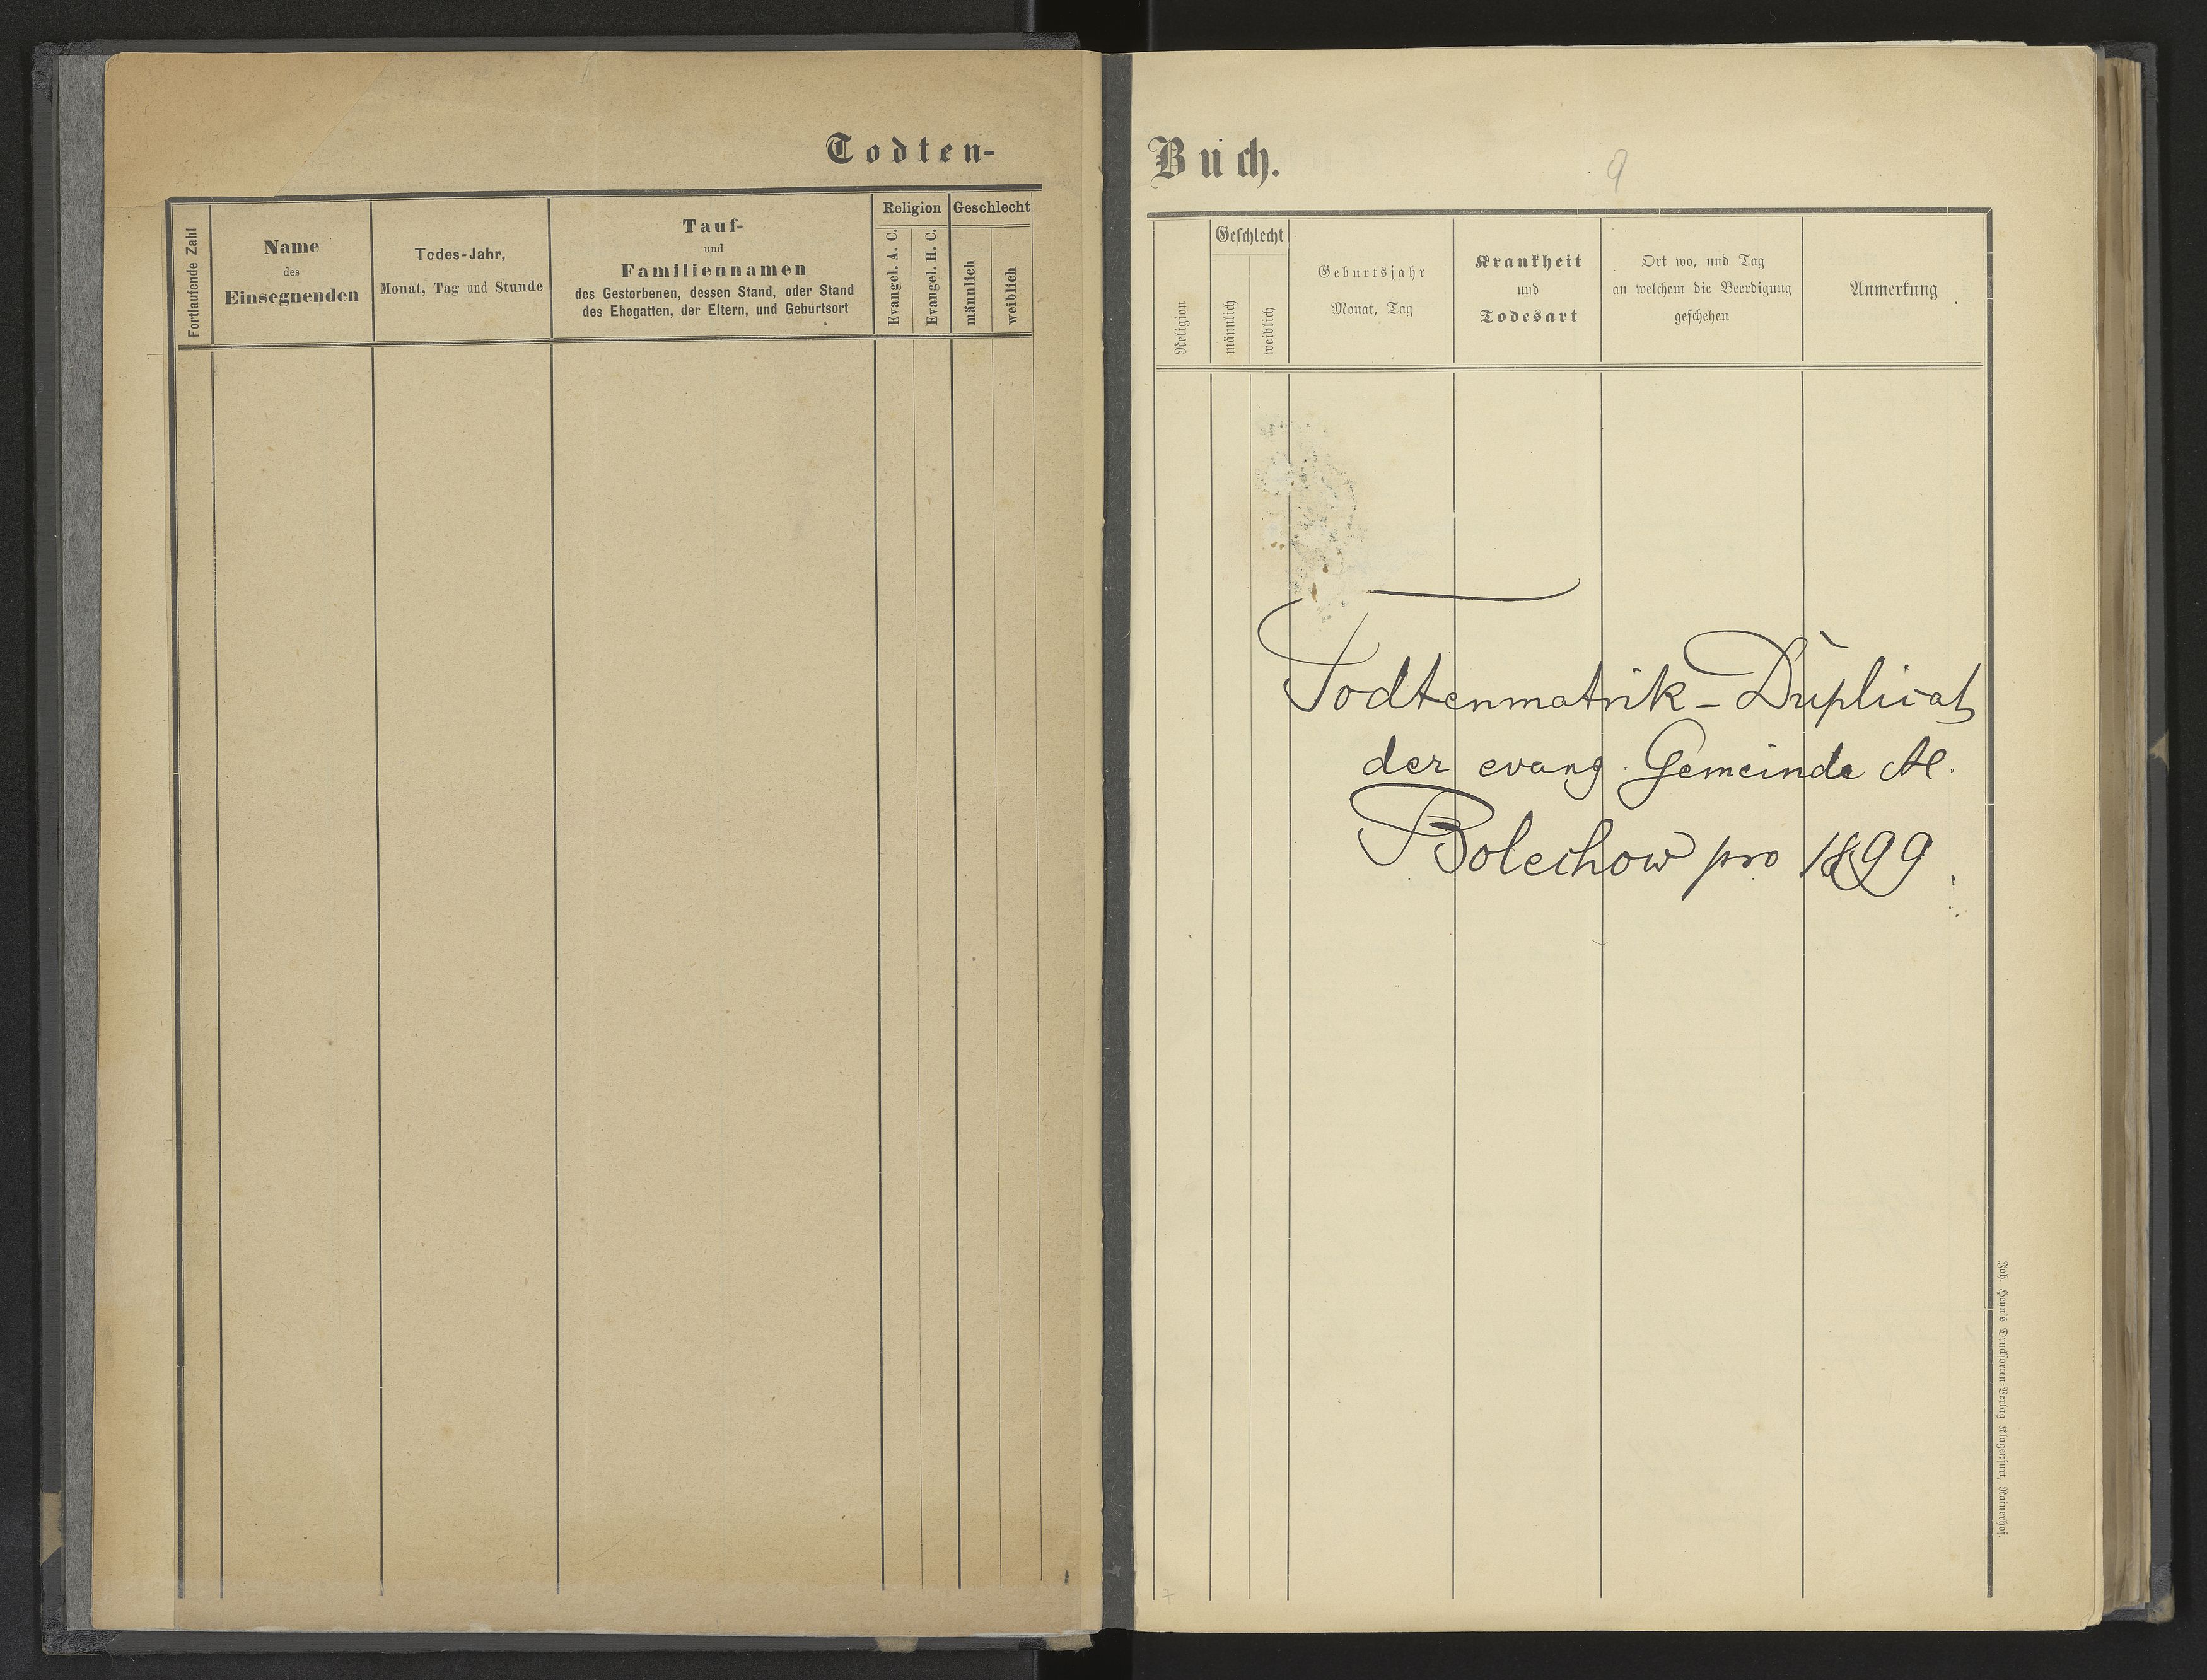 Todten-
Fortlaufende Zahl
Name
des
Einsegnenden
Todes-Jahr,
Monat, Tag und Stunde
Tauf-
und
Familiennamen
des Gestorbenen, dessen Stand, oder Stand
des Ehegatten, der Eltern, und Geburtsort
Religion
Evangel. A. C.
Evangel. H. C.
Geschlecht
männlich
weiblich
Buch.
9
Religion
Geschlecht
männlich
weiblich
Geburtsjahr
Monat, Tag
Krankheit
und
Todesart
Ort wo, und Tag
an welchem die Beerdigung
geschehen
Anmerkung
Todtenmatrik-Duplicat
der evang. Gemeinde
Bolechow pro 1899
Joh. Heyn's Drucksorten-Verlag Klagenfurt, Rainerhof.